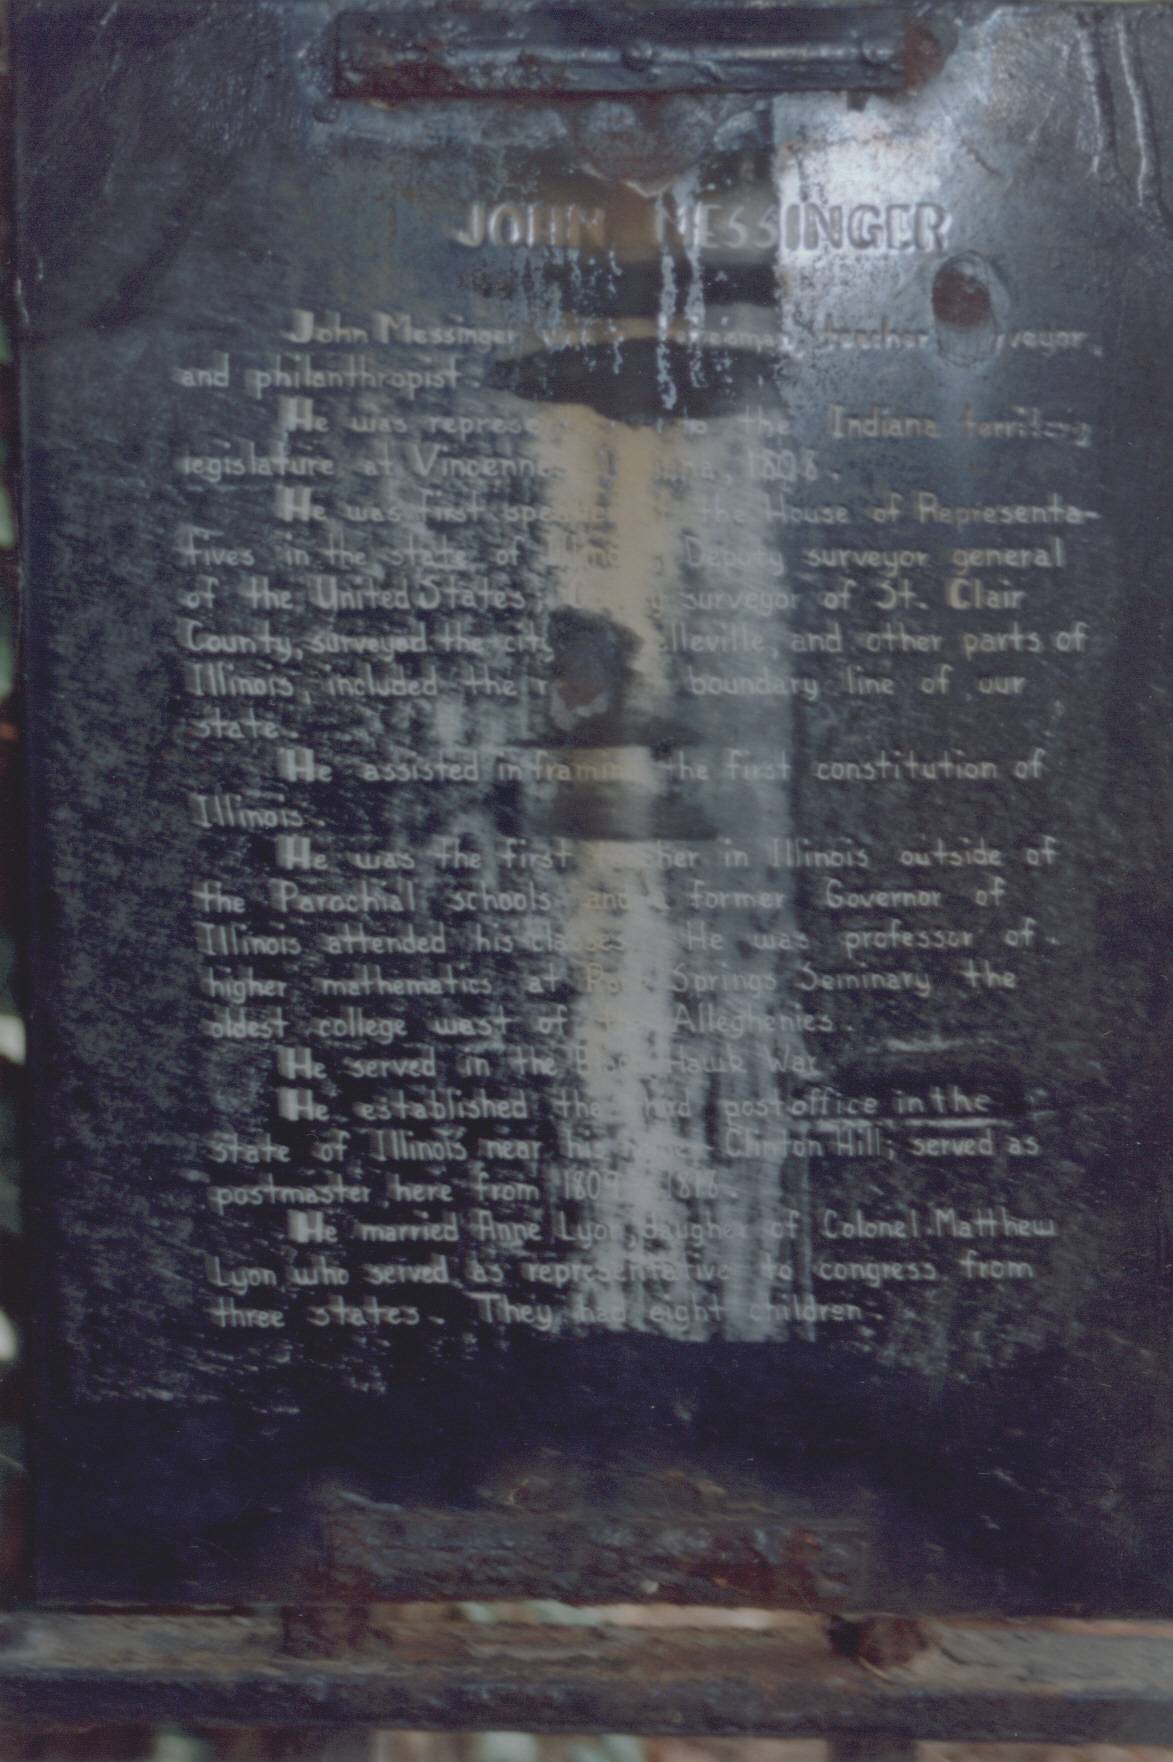 JOHN MESSINGER
John Messinger teacher
and philanthropist.
He was to the Indiana territory
legislature at 1808.
He was first the House of Representa-
tives in the state of Deputy surveyor general
of the United States; surveyor of St. Clair
County, surveyed the city and other parts of
Illinois, included the boundary line of our
state.
He assisted in framing the first constitution of
Illinois.
He was the first in Illinois outside of
the Parochial schools and former Governor of
Illinois attended his classes. He was professor of
higher mathematics at Springs Seminary the
oldest college west of Alleghenies.
He served in the Hawk War.
He established the postoffice in the
state of Illinois near his Hill; served as
postmaster here from
He married Anne Lyon, of Colonel Matthew
Lyon who served as representative to congress from
three states. They had eight children.